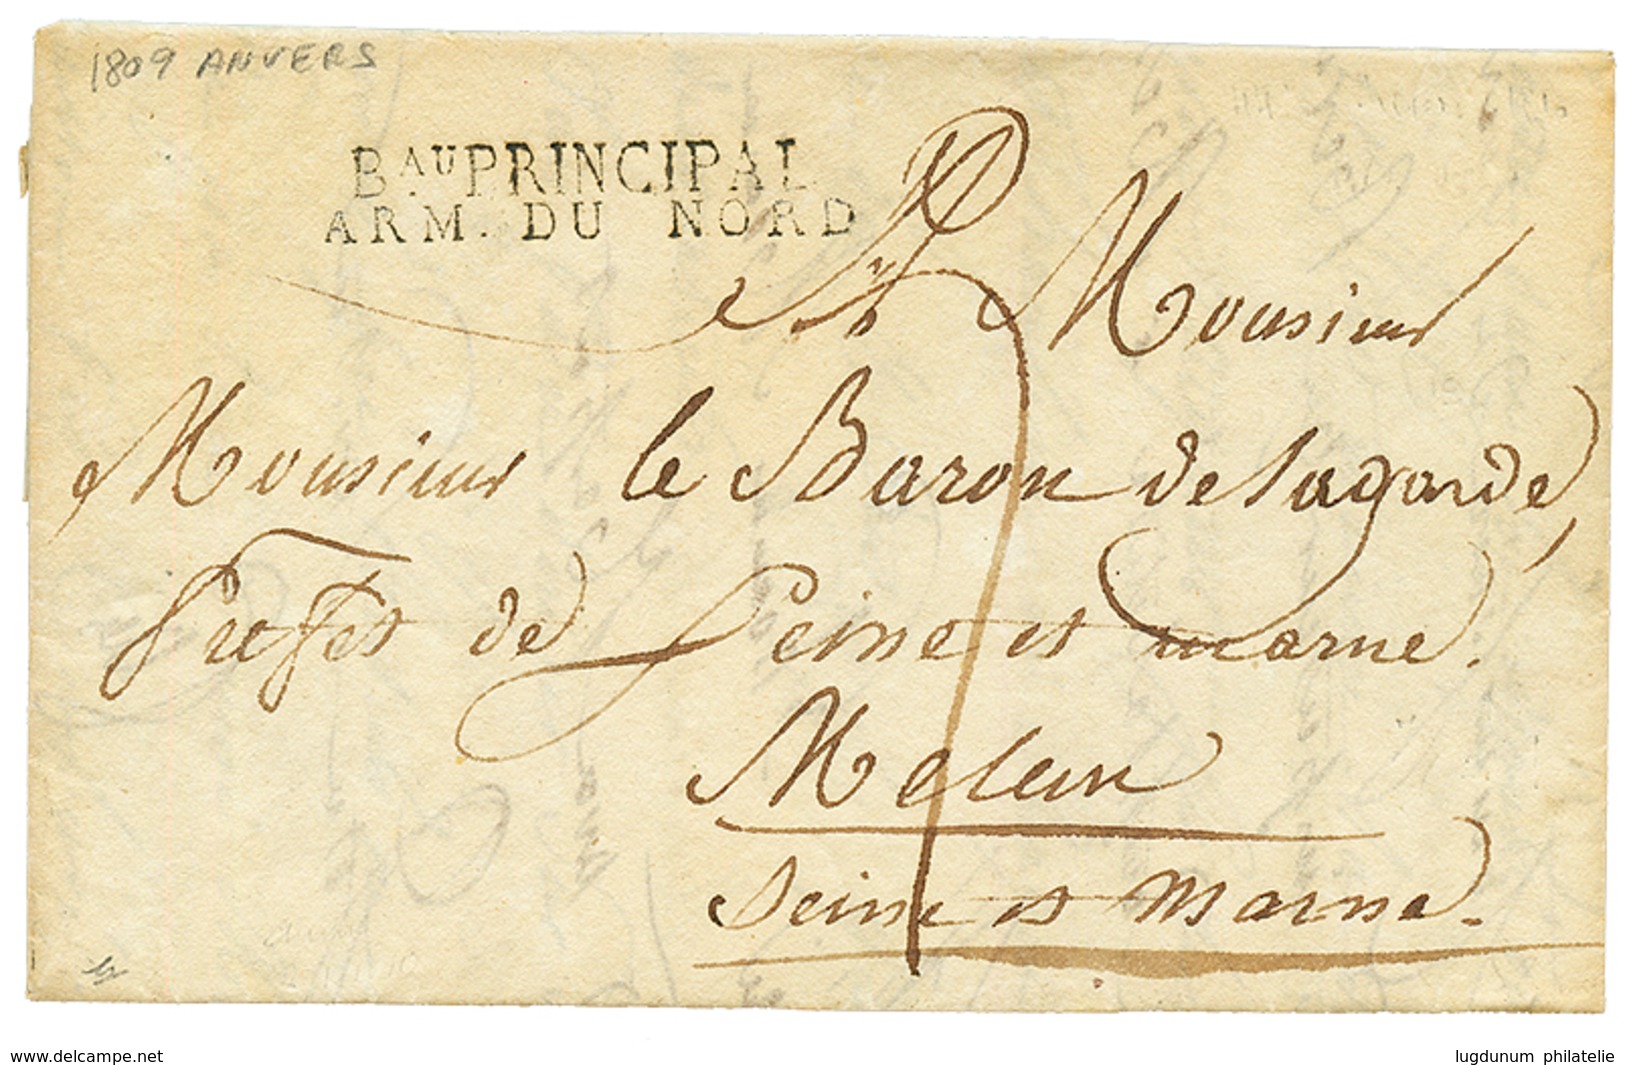 1809 ANVERS
BAU PRINCIPAL
ARM. DU NORD
A Monsieur
Monsieur le Baron de Lagarde,
Prefet de Seine et marne.
Melun
Seine et Marne.
www.delcampe.net
lugdunum philatelie